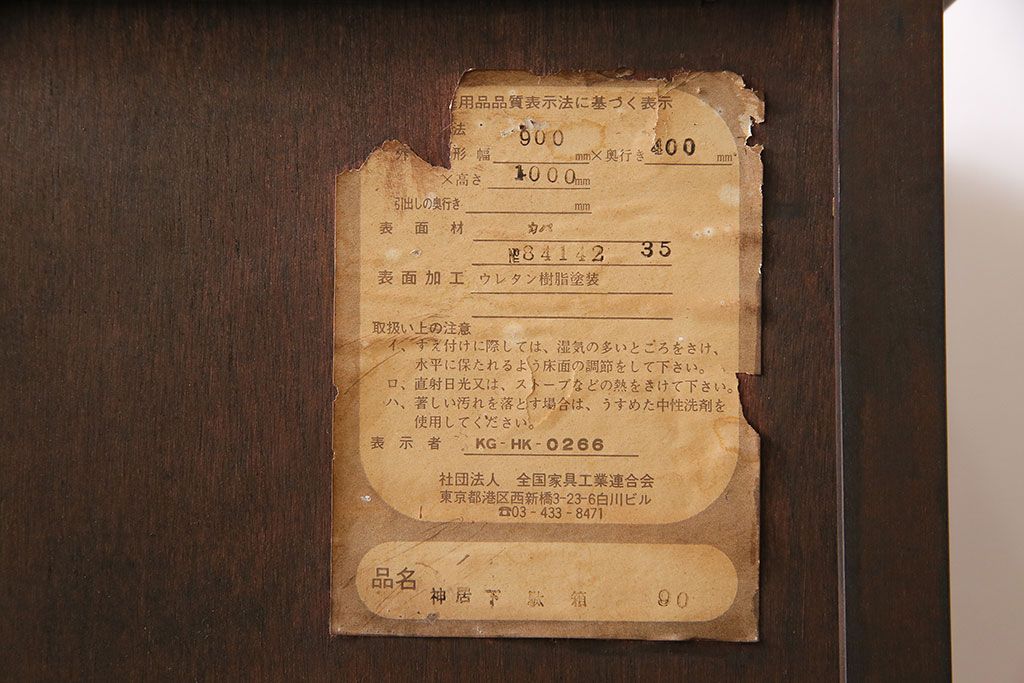 用品品質表示法に基づく表示
法
形 幅 900 mm×奥行き 400 mm
×高さ 1000 mm
引出しの奥行き mm
表面材 カバ
№84142 35
表面加工 ウレタン樹脂塗装
取扱い上の注意
イ、すえ付けに際しては、湿気の多いところをさけ、
水平に保たれるよう床面の調節をして下さい。
ロ、直射日光又は、ストーブなどの熱をさけて下さい。
ハ、著しい汚れを落とす場合は、うすめた中性洗剤を
使用してください。
表示者 KG-HK-0266
社団法人 全国家具工業連合会
東京都港区西新橋3-23-6白川ビル
☎03-433-8471
品名 神居下駄箱 90